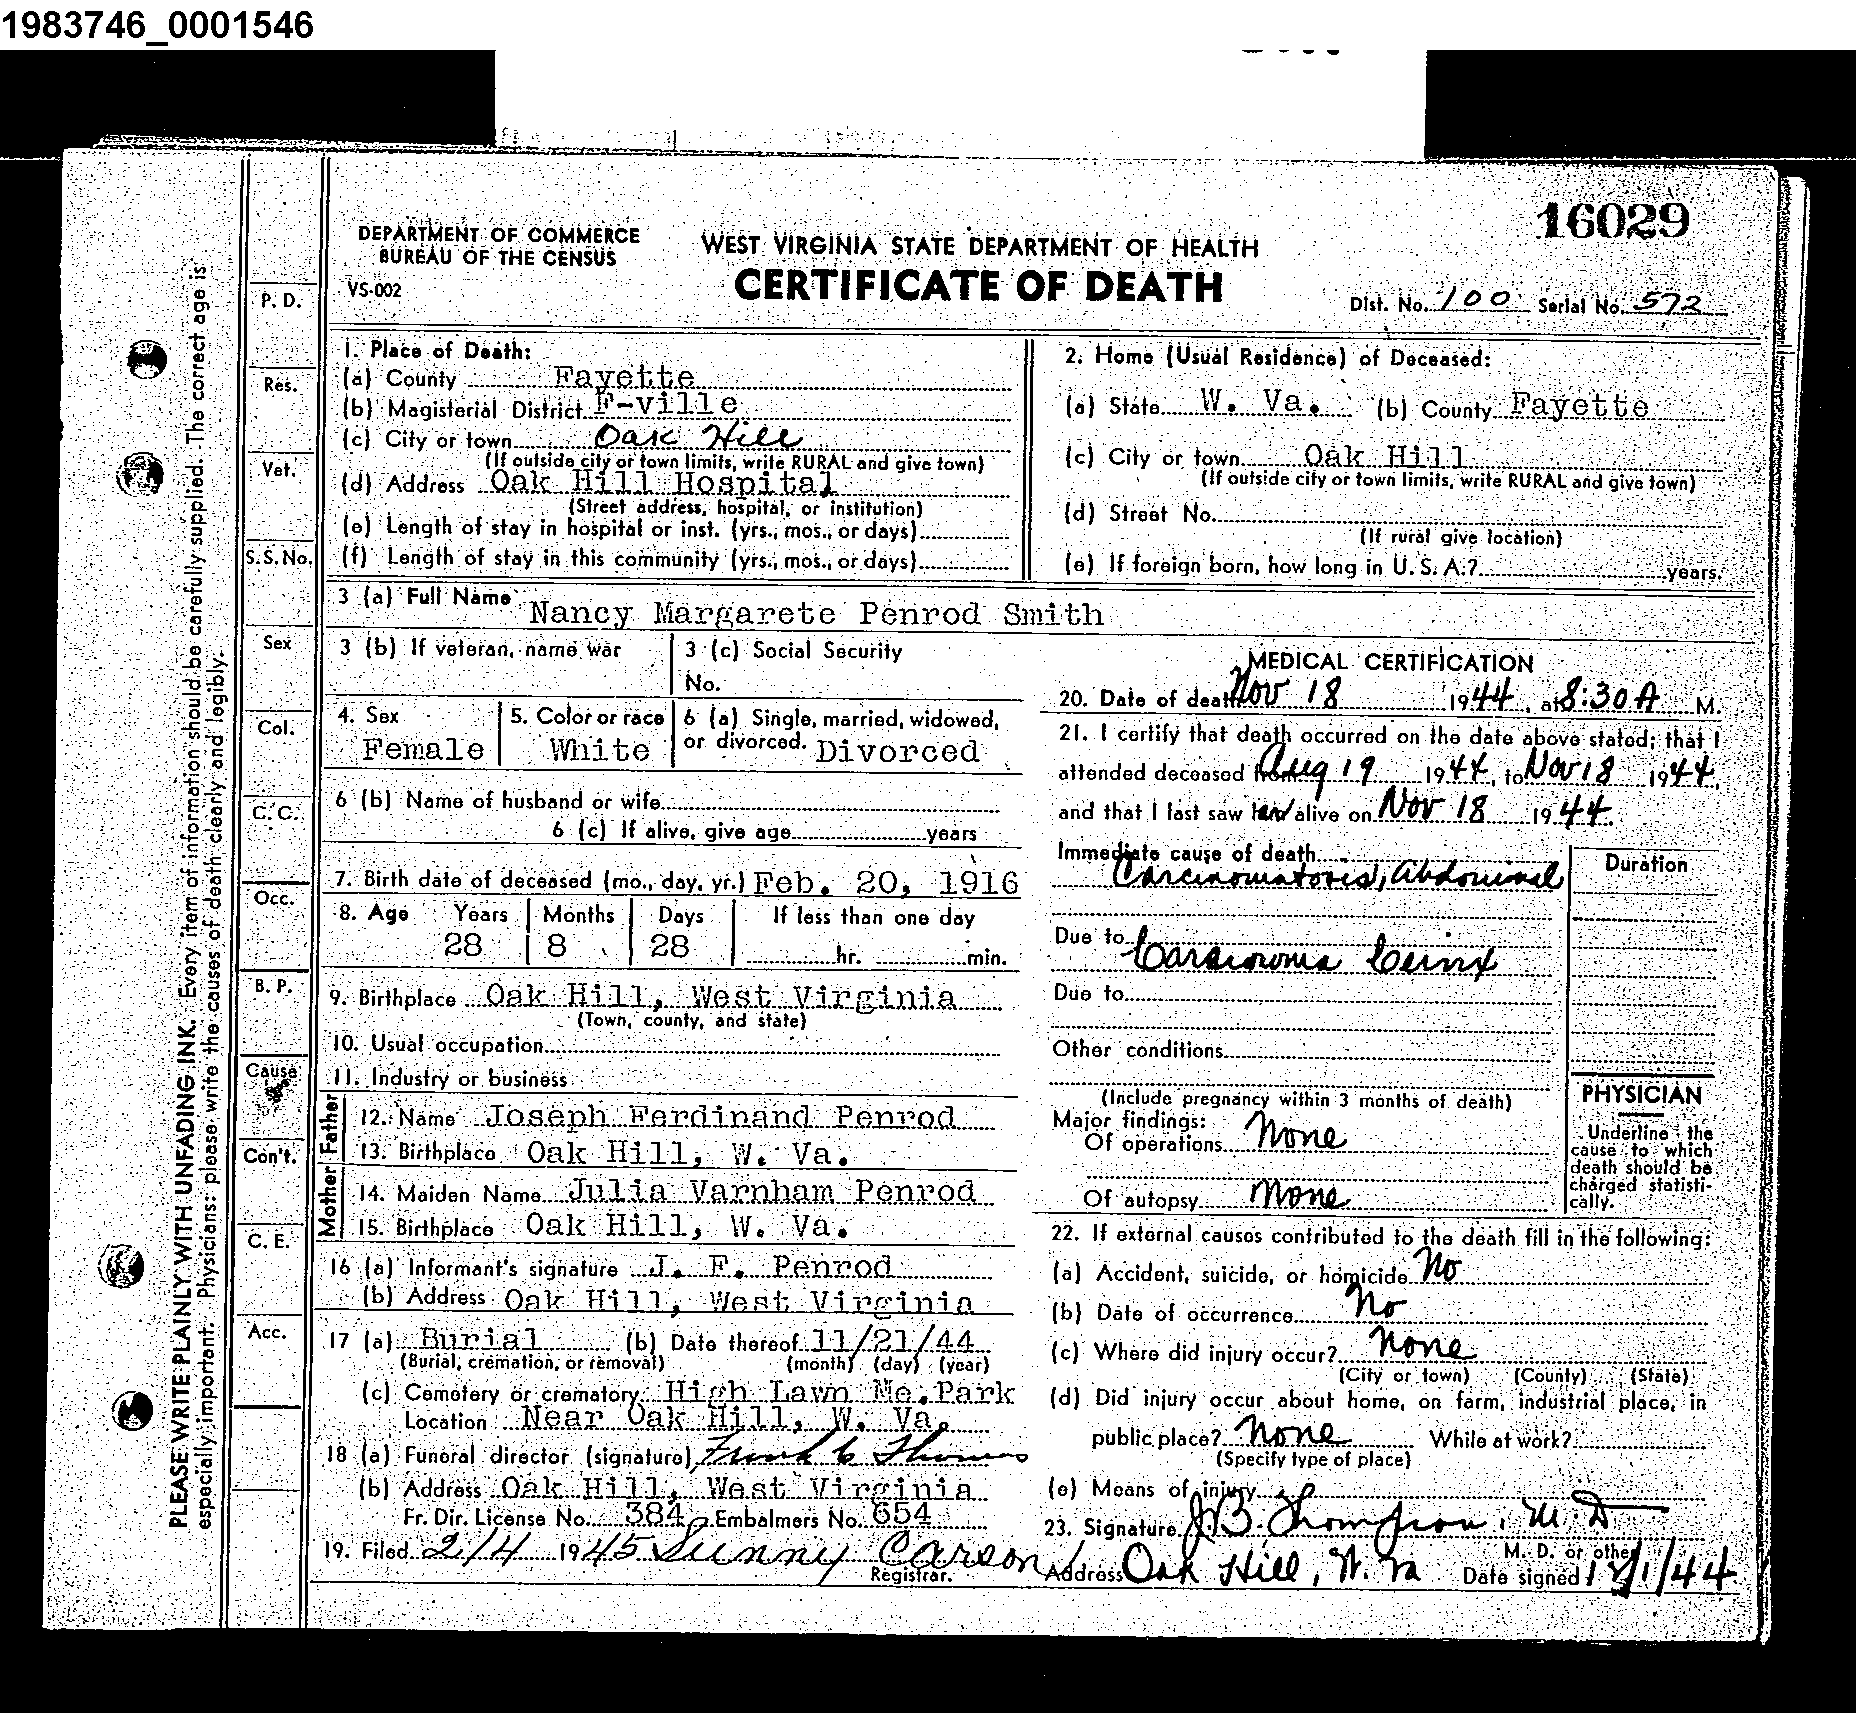 1983746_0001546
16029
DEPARTMENT OF COMMERCE
BUREAU OF THE CENSUS
VS-002
WEST VIRGINIA STATE DEPARTMENT OF HEALTH
CERTIFICATE OF DEATH
Dist. No. 100 Serial No. 572
PLEASE WRITE PLAINLY WITH UNFADING INK. Every item of information should be carefully supplied. The correct age is
especially important. Physicians: please write the causes of death clearly and legibly.
P. D.
Res.
Vet.
S. S. No.
Sex
Col.
C. C.
Occ.
B. P.
Cause
Con't.
C. E.
Acc.
1. Place of Death:
(a) County Fayette
(b) Magisterial District F-ville
(c) City or town Oak Hill
(If outside city or town limits, write RURAL and give town)
(d) Address Oak Hill Hospital
(Street address, hospital, or institution)
(e) Length of stay in hospital or inst. (yrs., mos., or days)
(f) Length of stay in this community (yrs., mos., or days)
2. Home (Usual Residence) of Deceased:
(a) State W. Va. (b) County Fayette
(c) City or town Oak Hill
(If outside city or town limits, write RURAL and give town)
(d) Street No.
(If rural give location)
(e) If foreign born, how long in U. S. A.? years.
3 (a) Full Name Nancy Margarete Penrod Smith
3 (b) If veteran, name war
3 (c) Social Security
No.
4. Sex
Female
5. Color or race
White
6 (a) Single, married, widowed,
or divorced. Divorced
6 (b) Name of husband or wife
6 (c) If alive, give age years
7. Birth date of deceased (mo., day, yr.) Feb. 20, 1916
8. Age Years Months Days If less than one day
28 8 28 hr. min.
9. Birthplace Oak Hill, West Virginia
(Town, county, and state)
10. Usual occupation
11. Industry or business
Father
12. Name Joseph Ferdinand Penrod
13. Birthplace Oak Hill, W. Va.
Mother
14. Maiden Name Julia Varnham Penrod
15. Birthplace Oak Hill, W. Va.
16 (a) Informant's signature J. F. Penrod
(b) Address Oak Hill, West Virginia
17 (a) Burial (b) Date thereof 11/21/44
(Burial, cremation, or removal) (month) (day) (year)
(c) Cemetery or crematory High Lawn Me. Park
Location Near Oak Hill, W. Va.
18 (a) Funeral director (signature) Frank C Thomas
(b) Address Oak Hill, West Virginia
Fr. Dir. License No. 384 Embalmers No. 654
19. Filed 2/4 1945 Sunny Carson
Registrar.
MEDICAL CERTIFICATION
20. Date of death Nov 18 1944, at 8:30 A M.
21. I certify that death occurred on the date above stated; that I
attended deceased from Aug 19 1944, to Nov 18 1944,
and that I last saw her alive on Nov 18 1944.
Immediate cause of death
Carcinomatosis, Abdominal
Duration
Due to Carcinoma Cervix
Due to
Other conditions
(Include pregnancy within 3 months of death)
Major findings:
Of operations None
Of autopsy None
PHYSICIAN
Underline the
cause to which
death should be
charged statisti-
cally.
22. If external causes contributed to the death fill in the following:
(a) Accident, suicide, or homicide No
(b) Date of occurrence No
(c) Where did injury occur? None
(City or town) (County) (State)
(d) Did injury occur about home, on farm, industrial place, in
public place? None While at work?
(Specify type of place)
(e) Means of injury
23. Signature J.B. Thompson, M. D
M. D. or other
Address Oak Hill, W. Va Date signed 12/1/44